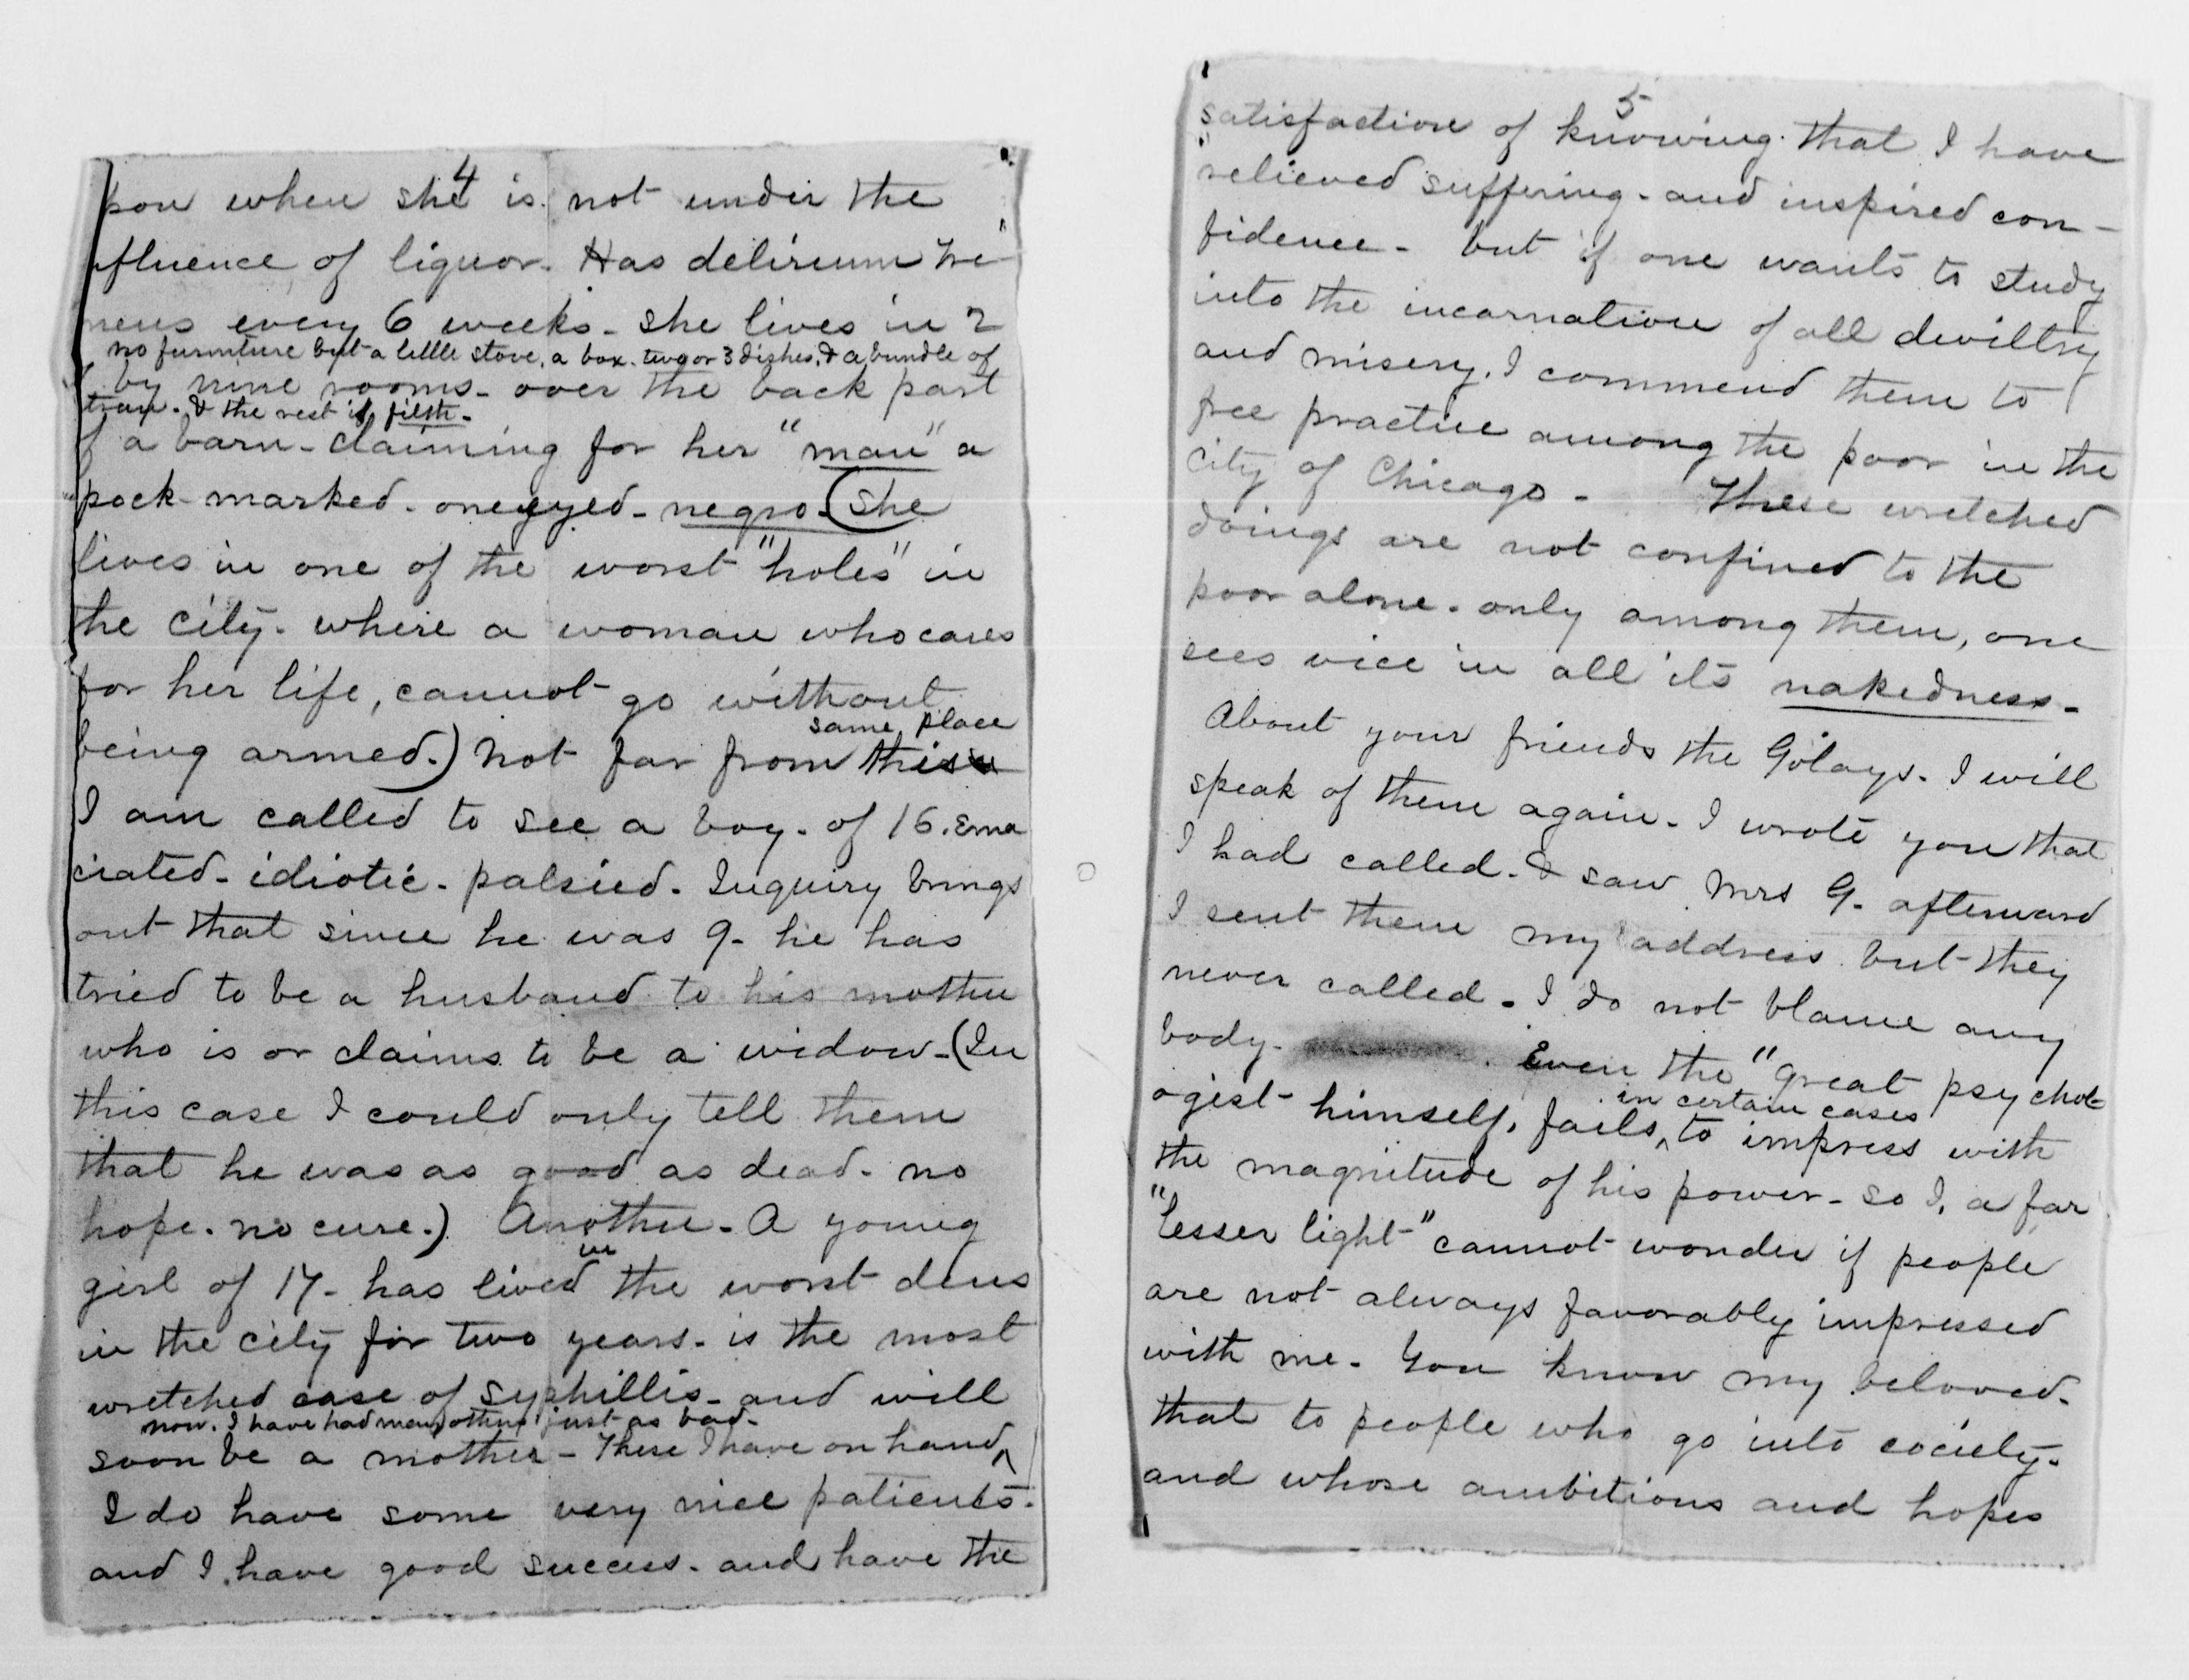 4
pon when she is not under the
nfluence of liquor. Has delirium tre-
mens every 6 weeks - she lives in 2
no furniture but a little stove, a box. two or 3 dishes, & a bundle of
by nine rooms - over the back part
straw. & the rest is filth -
f a barn - claiming for her "man" a
pock-marked - one eyed - negro. (She
lives in one of the worst "holes" in
the city - where a woman who cares
for her life, cannot go without
same place
being armed.) Not far from this
I am called to see a boy - of 16. Ema
ciated - idiotic - palsied - Inquiry brings
out that since he was 9 - he has
tried to be a husband to his mother
who is or claims to be a widow - (In
this case I could only tell them
that he was as good as dead - no
hope - no cure.) Another - A young
in
girl of 17 - has lived the worst dens
in the city for two years - is the most
wretched case of syphillis - and will
now. I have had many others just as bad -
soon be a mother - These I have on hand ^
I do have some very nice patients -
and I have good success - and have the
5
satisfaction of knowing that I have
relieved suffering - and inspired con-
fidence - but if one wants to study
into the incarnation of all deviltry
and misery, I commend them to
free practice among the poor in the
city of Chicago - These wretched
doings are not confined to the
poor alone - only among them, one
sees vice in all its nakedness -
About your friends the Golays - I will
speak of them again - I wrote you that
I had called - & saw Mrs G. afterward
I sent them my address but they
never called - I do not blame any
body - Even the "great psychol-
in certain cases
ogist himself, fails ^ to impress with
the magnitude of his power - so I, a far
"lesser light" cannot wonder if people
are not always favorably impressed
with me - You know my beloved -
that to people who go into society -
and whose ambitions and hopes